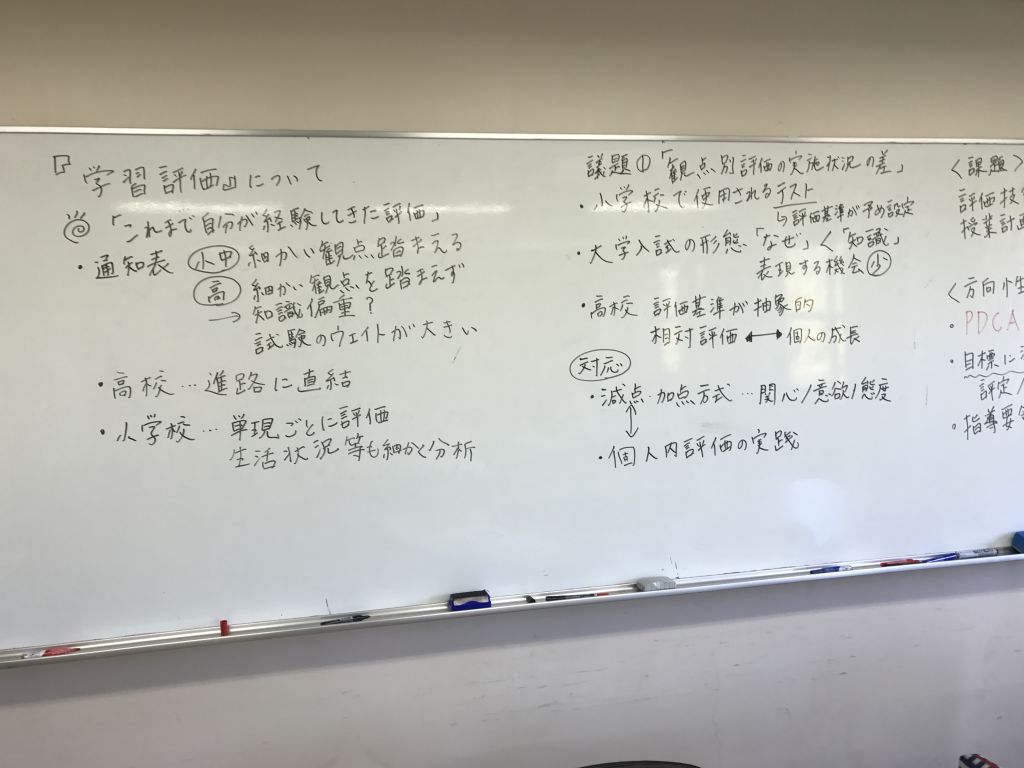 『学習評価』について
「これまで自分が経験してきた評価」
・通知表 小中 細かい観点踏まえる
高 細かい観点を踏まえず
→ 知識偏重？
試験のウェイトが大きい
・高校…進路に直結
・小学校…単現ごとに評価
生活状況等も細かく分析
議題①「観点別評価の実施状況の差」
・小学校で使用されるテスト
↳評価基準が予め設定
・大学入試の形態「なぜ」<「知識」
表現する機会少
・高校 評価基準が抽象的
相対評価 ↔ 個人の成長
対応
・減点・加点方式…関心/意欲/態度
↕
・個人内評価の実践
〈課題〉
評価技
授業計画
〈方向性
・PDCA
・目標に
評定/
・指導要